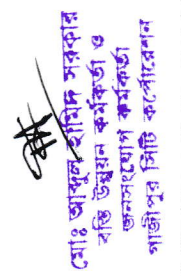 মোঃ আব্দুল হামিদ সরকার
বস্তি উন্নয়ন কর্মকর্তা ও
জনসংযোগ কর্মকর্তা
গাজীপুর সিটি কর্পোরেশন